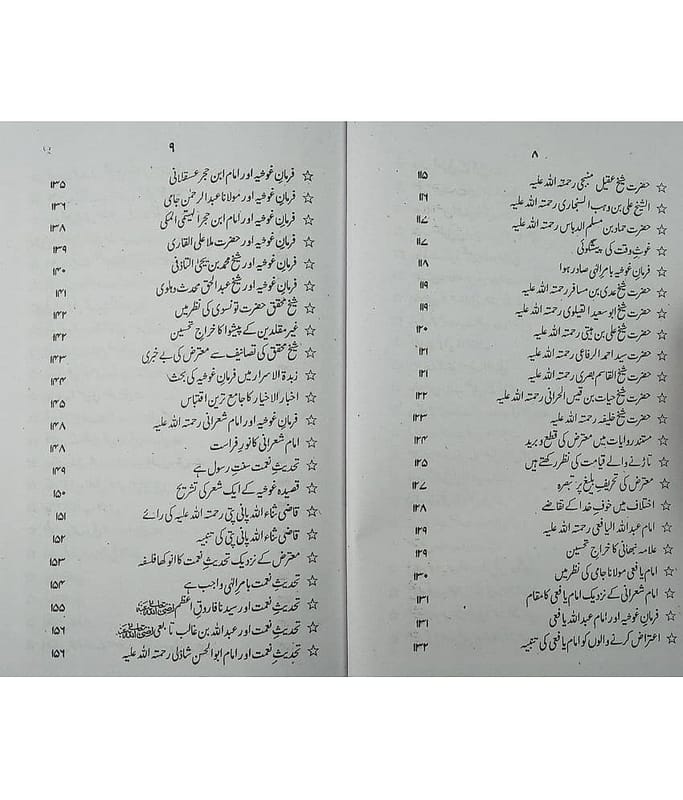 ۸
☆ حضرت شیخ عقیل منبجی رحمتہ اللہ علیہ ۱۱۵
☆ الشیخ علی بن وہب السنجاری رحمتہ اللہ علیہ ۱۱۶
☆ حضرت حماد بن مسلم الدباس رحمتہ اللہ علیہ ۱۱۷
☆ غوثِ وقت کی پیشگوئی ۱۱۷
☆ فرمانِ غوثیہ بامرِ الٰہی صادر ہوا ۱۱۸
☆ حضرت شیخ عدی بن مسافر رحمتہ اللہ علیہ ۱۱۹
☆ حضرت شیخ ابو سعید القیلوی رحمتہ اللہ علیہ ۱۱۹
☆ حضرت شیخ علی بن ہیتی رحمتہ اللہ علیہ ۱۲۰
☆ حضرت سید احمد الرفاعی رحمتہ اللہ علیہ ۱۲۱
☆ حضرت شیخ القاسم بصری رحمتہ اللہ علیہ ۱۲۱
☆ حضرت شیخ حیات بن قیس الحرانی رحمتہ اللہ علیہ ۱۲۲
☆ حضرت شیخ خلیفہ رحمتہ اللہ علیہ ۱۲۳
☆ مستند روایات میں معترض کی قطع و برید ۱۲۴
☆ تاڑنے والے قیامت کی نظر رکھتے ہیں ۱۲۵
☆ معترض کی تحریفِ بلیغ پر تبصرہ ۱۲۷
☆ اختلاف میں خوفِ خدا کے تقاضے ۱۲۸
☆ امام عبداللہ الیافعی رحمتہ اللہ علیہ ۱۲۹
☆ علامہ نبھانی کا خراجِ تحسین ۱۲۹
☆ امام یافعی مولانا جامی کی نظر میں ۱۳۰
☆ امام شعرانی کے نزدیک امام یافعی کا مقام ۱۳۱
☆ فرمانِ غوثیہ اور امام عبداللہ یافعی ۱۳۱
☆ اعتراض کرنے والوں کو امام یافعی کی تنبیہ ۱۳۲
۹
☆ فرمانِ غوثیہ اور امام ابن حجر عسقلانی ۱۳۵
☆ فرمانِ غوثیہ اور مولانا عبدالرحمٰن جامی ۱۳۶
☆ فرمانِ غوثیہ اور امام ابن حجر الہیتمی المکی ۱۳۸
☆ فرمانِ غوثیہ اور حضرت ملا علی القاری ۱۳۹
☆ فرمانِ غوثیہ اور شیخ محمد بن یحیٰ التاذفی ۱۴۰
☆ فرمانِ غوثیہ اور شیخ عبدالحق محدث دہلوی ۱۴۱
☆ شیخ محقق حضرت تونسوی کی نظر میں ۱۴۲
☆ غیر مقلدین کے پیشوا کا خراجِ تحسین ۱۴۲
☆ شیخ محقق کی تصانیف سے معترض کی بے خبری ۱۴۳
☆ زبدۃ الاسرار میں فرمانِ غوثیہ کی بحث ۱۴۴
☆ اخبار الاخیار کا جامع ترین اقتباس ۱۴۵
☆ فرمانِ غوثیہ اور امام شعرانی رحمتہ اللہ علیہ ۱۴۸
☆ امام شعرانی کا نورِ فراست ۱۴۸
☆ تحدیثِ نعمت سنتِ رسول ہے ۱۴۹
☆ قصیدہ غوثیہ کے ایک شعر کی تشریح ۱۵۰
☆ قاضی ثناء اللہ پانی پتی رحمتہ اللہ علیہ کی رائے ۱۵۱
☆ قاضی ثناء اللہ پانی پتی کی تنبیہ ۱۵۲
☆ معترض کے نزدیک تحدیثِ نعمت کا انوکھا فلسفہ ۱۵۳
☆ تحدیثِ نعمت بامرِ الٰہی واجب ہے ۱۵۴
☆ تحدیثِ نعمت اور سیدنا فاروقِ اعظم ۱۵۵
☆ تحدیثِ نعمت اور عبداللہ بن غالب تابعی ۱۵۶
☆ تحدیثِ نعمت اور امام ابوالحسن شاذلی رحمتہ اللہ علیہ ۱۵۶